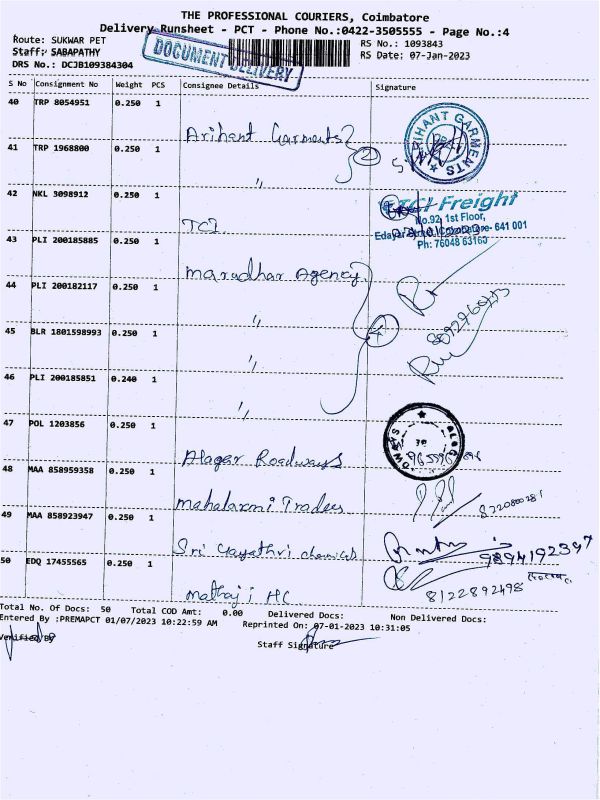 THE PROFESSIONAL COURIERS, Coimbatore
Delivery Runsheet - PCT - Phone No.:0422-3505555 - Page No.:4
Route: SUKWAR PET
RS No.: 1093843
Staff: SABAPATHY
RS Date: 07-Jan-2023
DRS No.: DCJB109384304
DOCUMENT DELIVERY
S No Consignment No Weight PCS Consignee Details Signature
40 TRP 8054951 0.250 1
Arihant Garments
ARIHANT GARMENTS
41 TRP 1968800 0.250 1
2
"
42 NKL 3098912 0.250 1
TCI
TCI Freight
No.92, 1st Floor,
Coimbatore- 641 001
Ph: 76048 63160
43 PLI 200185885 0.250 1
Marudhar Agency
44 PLI 200182117 0.250 1
"
45 BLR 1801598993 0.250 1
4
"
46 PLI 200185851 0.240 1
"
47 POL 1203856 0.250 1
Alagar Roadways
48 MAA 858959358 0.250 1
Mahalaxmi Traders
49 MAA 858923947 0.250 1
Sri Gayathri chemicals
9894192397
50 EDQ 17455565 0.250 1
8122892498
Total No. Of Docs: 50 Total COD Amt: 0.00 Delivered Docs: Non Delivered Docs:
Entered By :PREMAPCT 01/07/2023 10:22:59 AM Reprinted On: 07-01-2023 10:31:05
Verified By
Staff Signature